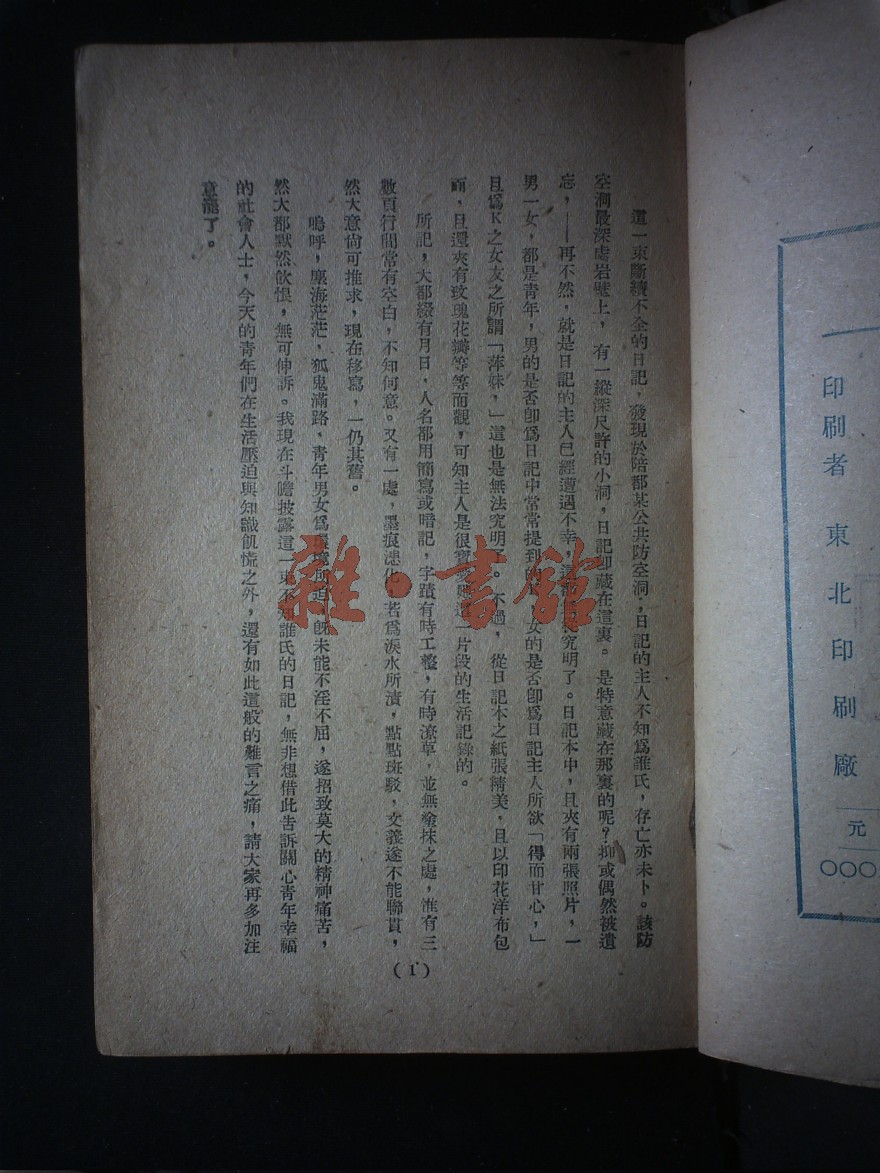 印刷者 東北印刷廠
元
〇〇〇
這一束斷續不全的日記，發現於陪都某公共防空洞；日記的主人不知爲誰氏，存亡亦未卜。該防
空洞最深處岩壁上，有一縱深尺許的小洞，日記卽藏在這裏。是特意藏在那裏的呢？抑或偶然被遺
忘，——再不然，就是日記的主人已經遭遇不幸，這都從究明了。日記本中，且夾有兩張照片，一
男一女，都是青年，男的是否卽爲日記中常常提到的女的是否卽爲日記主人所欲「得而甘心，」
且爲K之女友之所謂「萍妹，」這也是無法究明了。不過，從日記本之紙張精美，且以印花洋布包
面，且還夾有玫瑰花瓣等等而觀，可知主人是很寶愛這一片段的生活記錄的。
所記，大都綴有月日，人名都用簡寫或暗記，字蹟有時工整，有時潦草，並無塗抹之處，惟有三
數頁行間常有空白，不知何意。又有一處，墨痕漶化，若爲淚水所漬，點點斑駁，文義遂不能聯貫，
然大意尙可推求，現在移寫，一仍其舊。
嗚呼，塵海茫茫，狐鬼滿路，青年男女爲環境所迫，旣未能不淫不屈，遂招致莫大的精神痛苦，
然大都默然飮恨，無可伸訴。我現在斗膽披露這一束不知誰氏的日記，無非想借此吿訴關心青年幸福
的社會人士，今天的青年們在生活壓迫與知識飢慌之外，還有如此這般的難言之痛，請大家再多加注
意罷了。
(1)
雜·書館